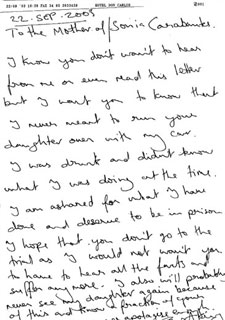 HOTEL DON CARLOS
22. SEP. 2005
To the Mother of Sonia Carabantes.
I know you don't want to hear
from me or even read this letter
but I want you to know that
I never meant to run your
daughter over with my car.
I was drunk and didn't know
what I was doing at the time.
I am ashamed for what I have
done and deserve to be in prison
I hope that you don't go to the
trial as I would not want you
to have to hear all the facts and
suffer any more. I also will probably
never see my daughter again because
of this and know a fraction of your
apologise